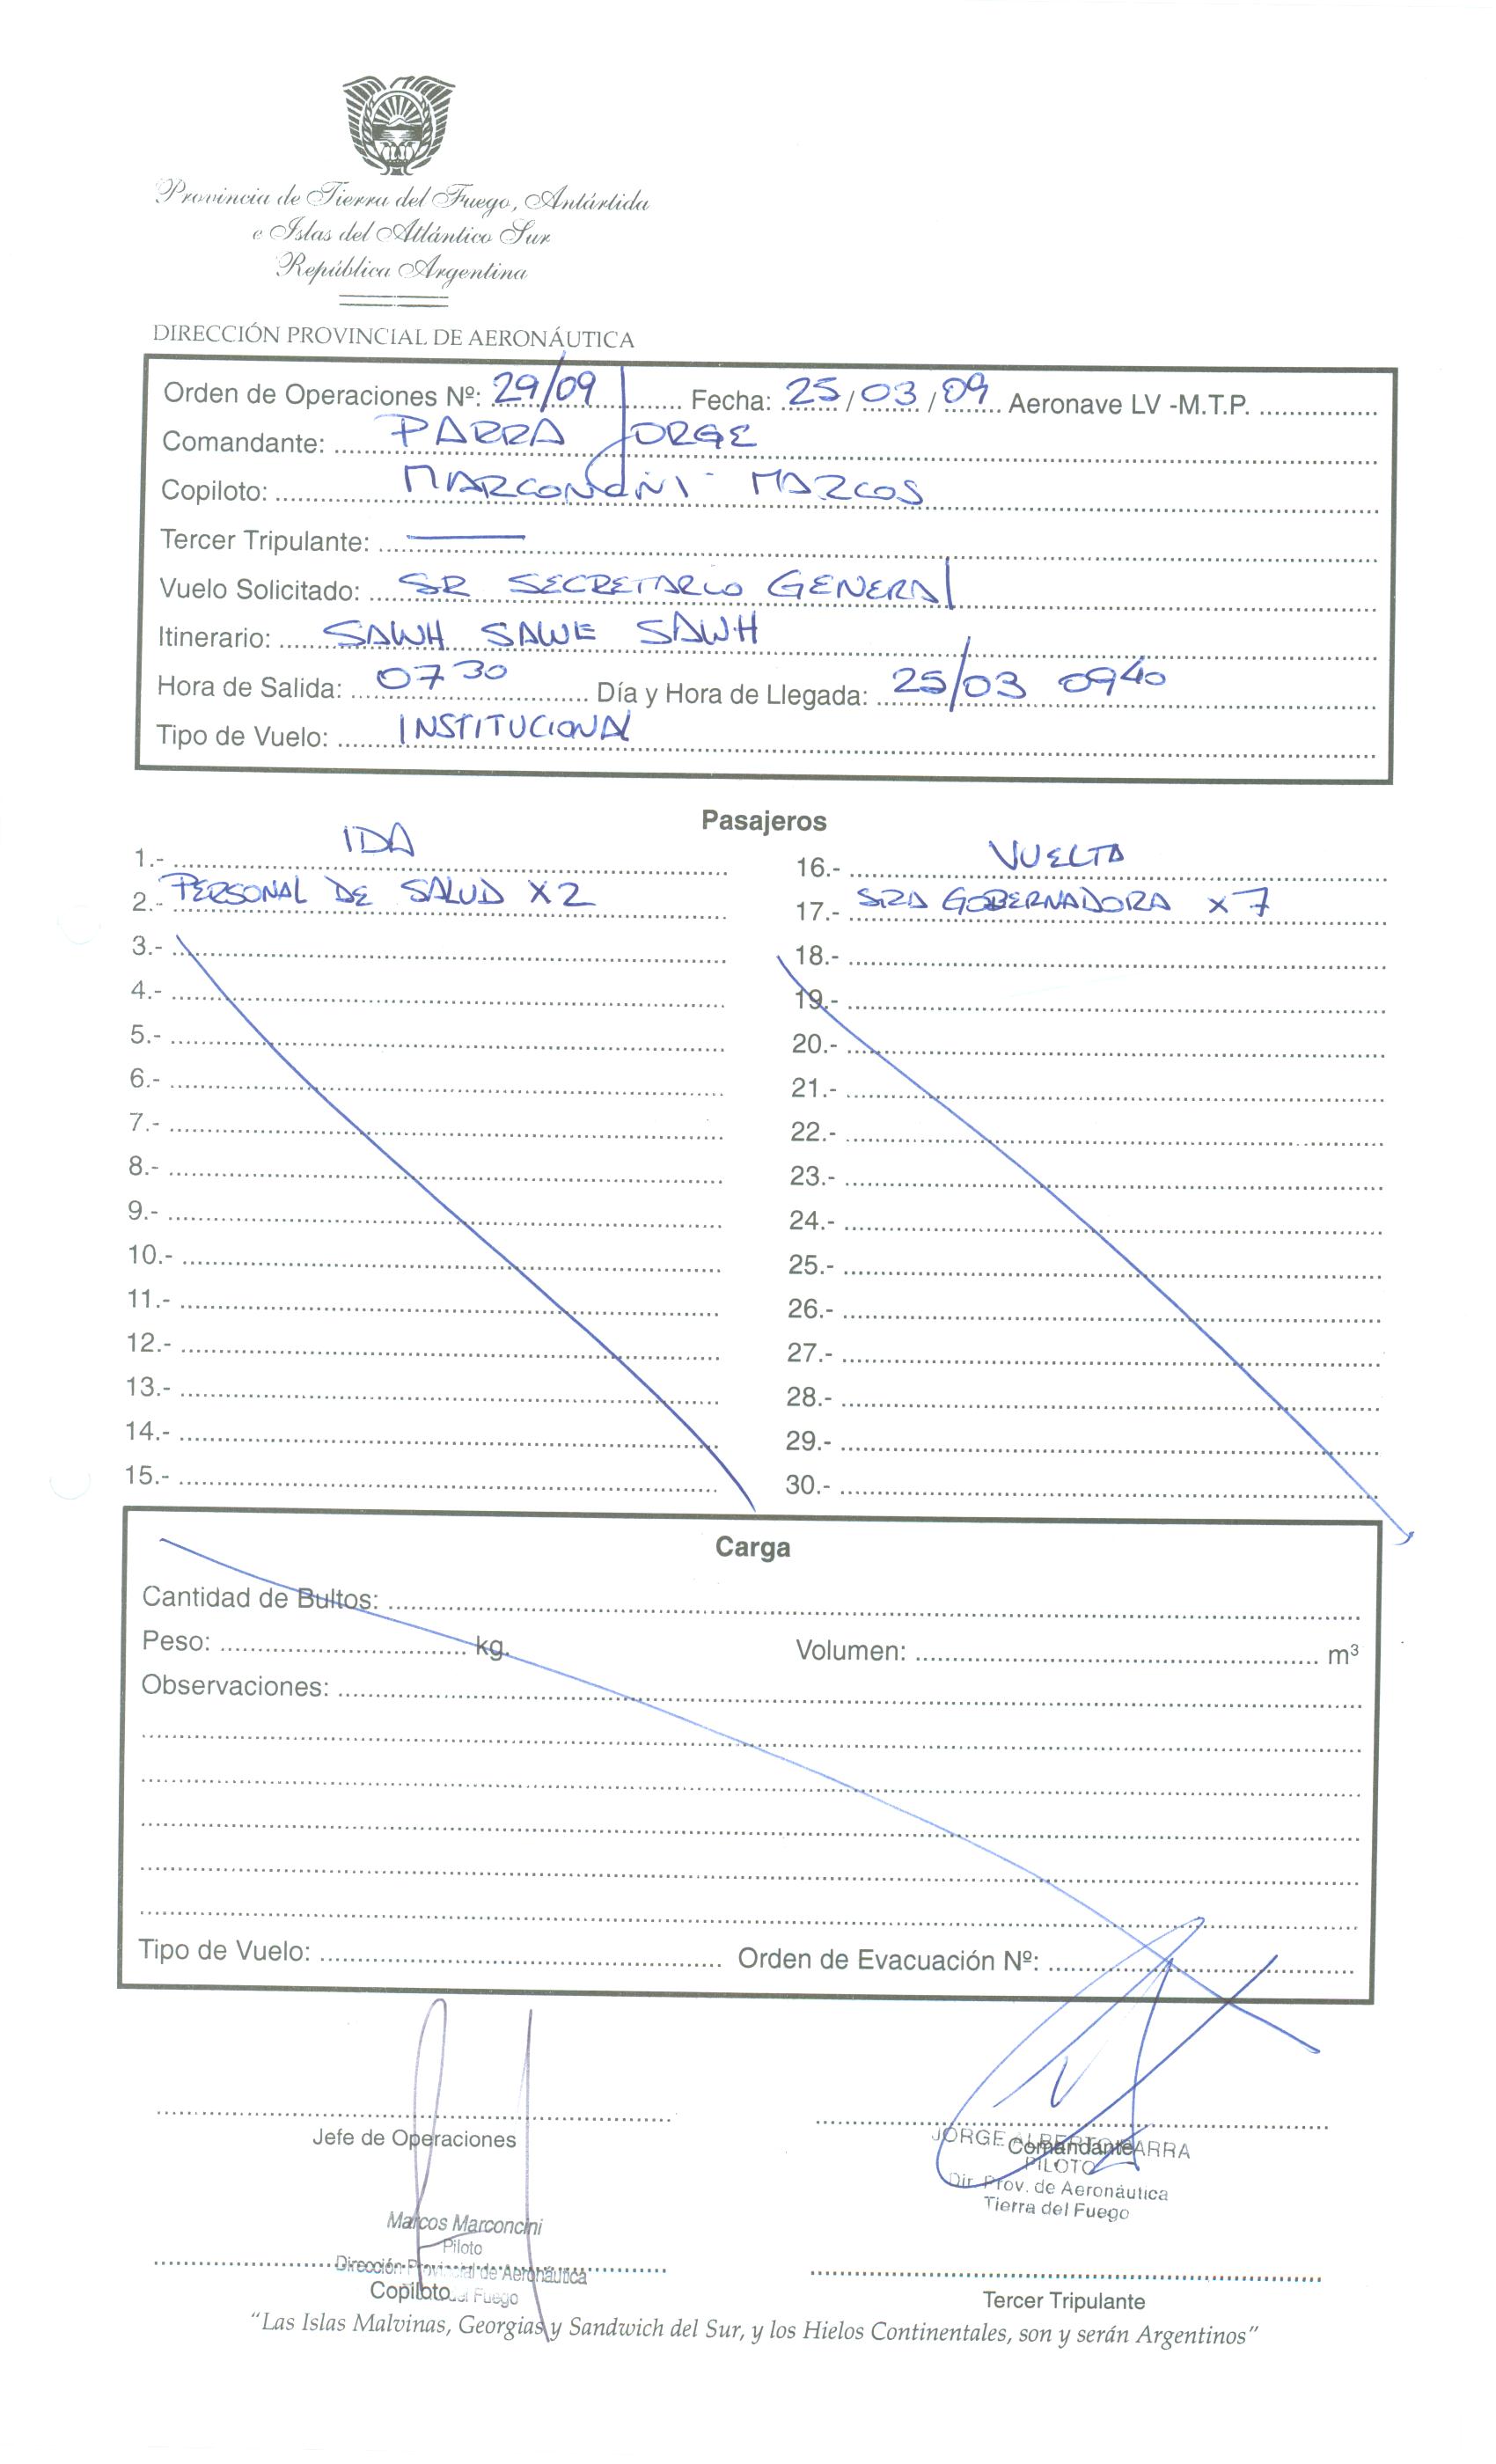 Provincia de Tierra del Fuego, Antártida
e Islas del Atlántico Sur
República Argentina
DIRECCIÓN PROVINCIAL DE AERONÁUTICA
Orden de Operaciones Nº: 29/09 Fecha: 25/03/09 Aeronave LV -M.T.P.
Comandante: PARRA JORGE
Copiloto: MARCONCINI MARCOS
Tercer Tripulante: ———
Vuelo Solicitado: SR SECRETARIO GENERAL
Itinerario: SAWH SAWE SAWH
Hora de Salida: 07 30 Día y Hora de Llegada: 25/03 0940
Tipo de Vuelo: INSTITUCIONAL
Pasajeros
1.- IDA
2.- PERSONAL DE SALUD X 2
3.-
4.-
5.-
6.-
7.-
8.-
9.-
10.-
11.-
12.-
13.-
14.-
15.-
16.- VUELTA
17.- SRA GOBERNADORA x 7
18.-
19.-
20.-
21.-
22.-
23.-
24.-
25.-
26.-
27.-
28.-
29.-
30.-
Carga
Cantidad de Bultos:
Peso: kg. Volumen: m³
Observaciones:
Tipo de Vuelo: Orden de Evacuación Nº:
Jefe de Operaciones
Comandante
JORGE ALBERTO PARRA
PILOTO
Dir. Prov. de Aeronáutica
Tierra del Fuego
Marcos Marconcini
Piloto
Dirección Provincial de Aeronáutica
del Fuego
Copiloto
Tercer Tripulante
"Las Islas Malvinas, Georgias y Sandwich del Sur, y los Hielos Continentales, son y serán Argentinos"